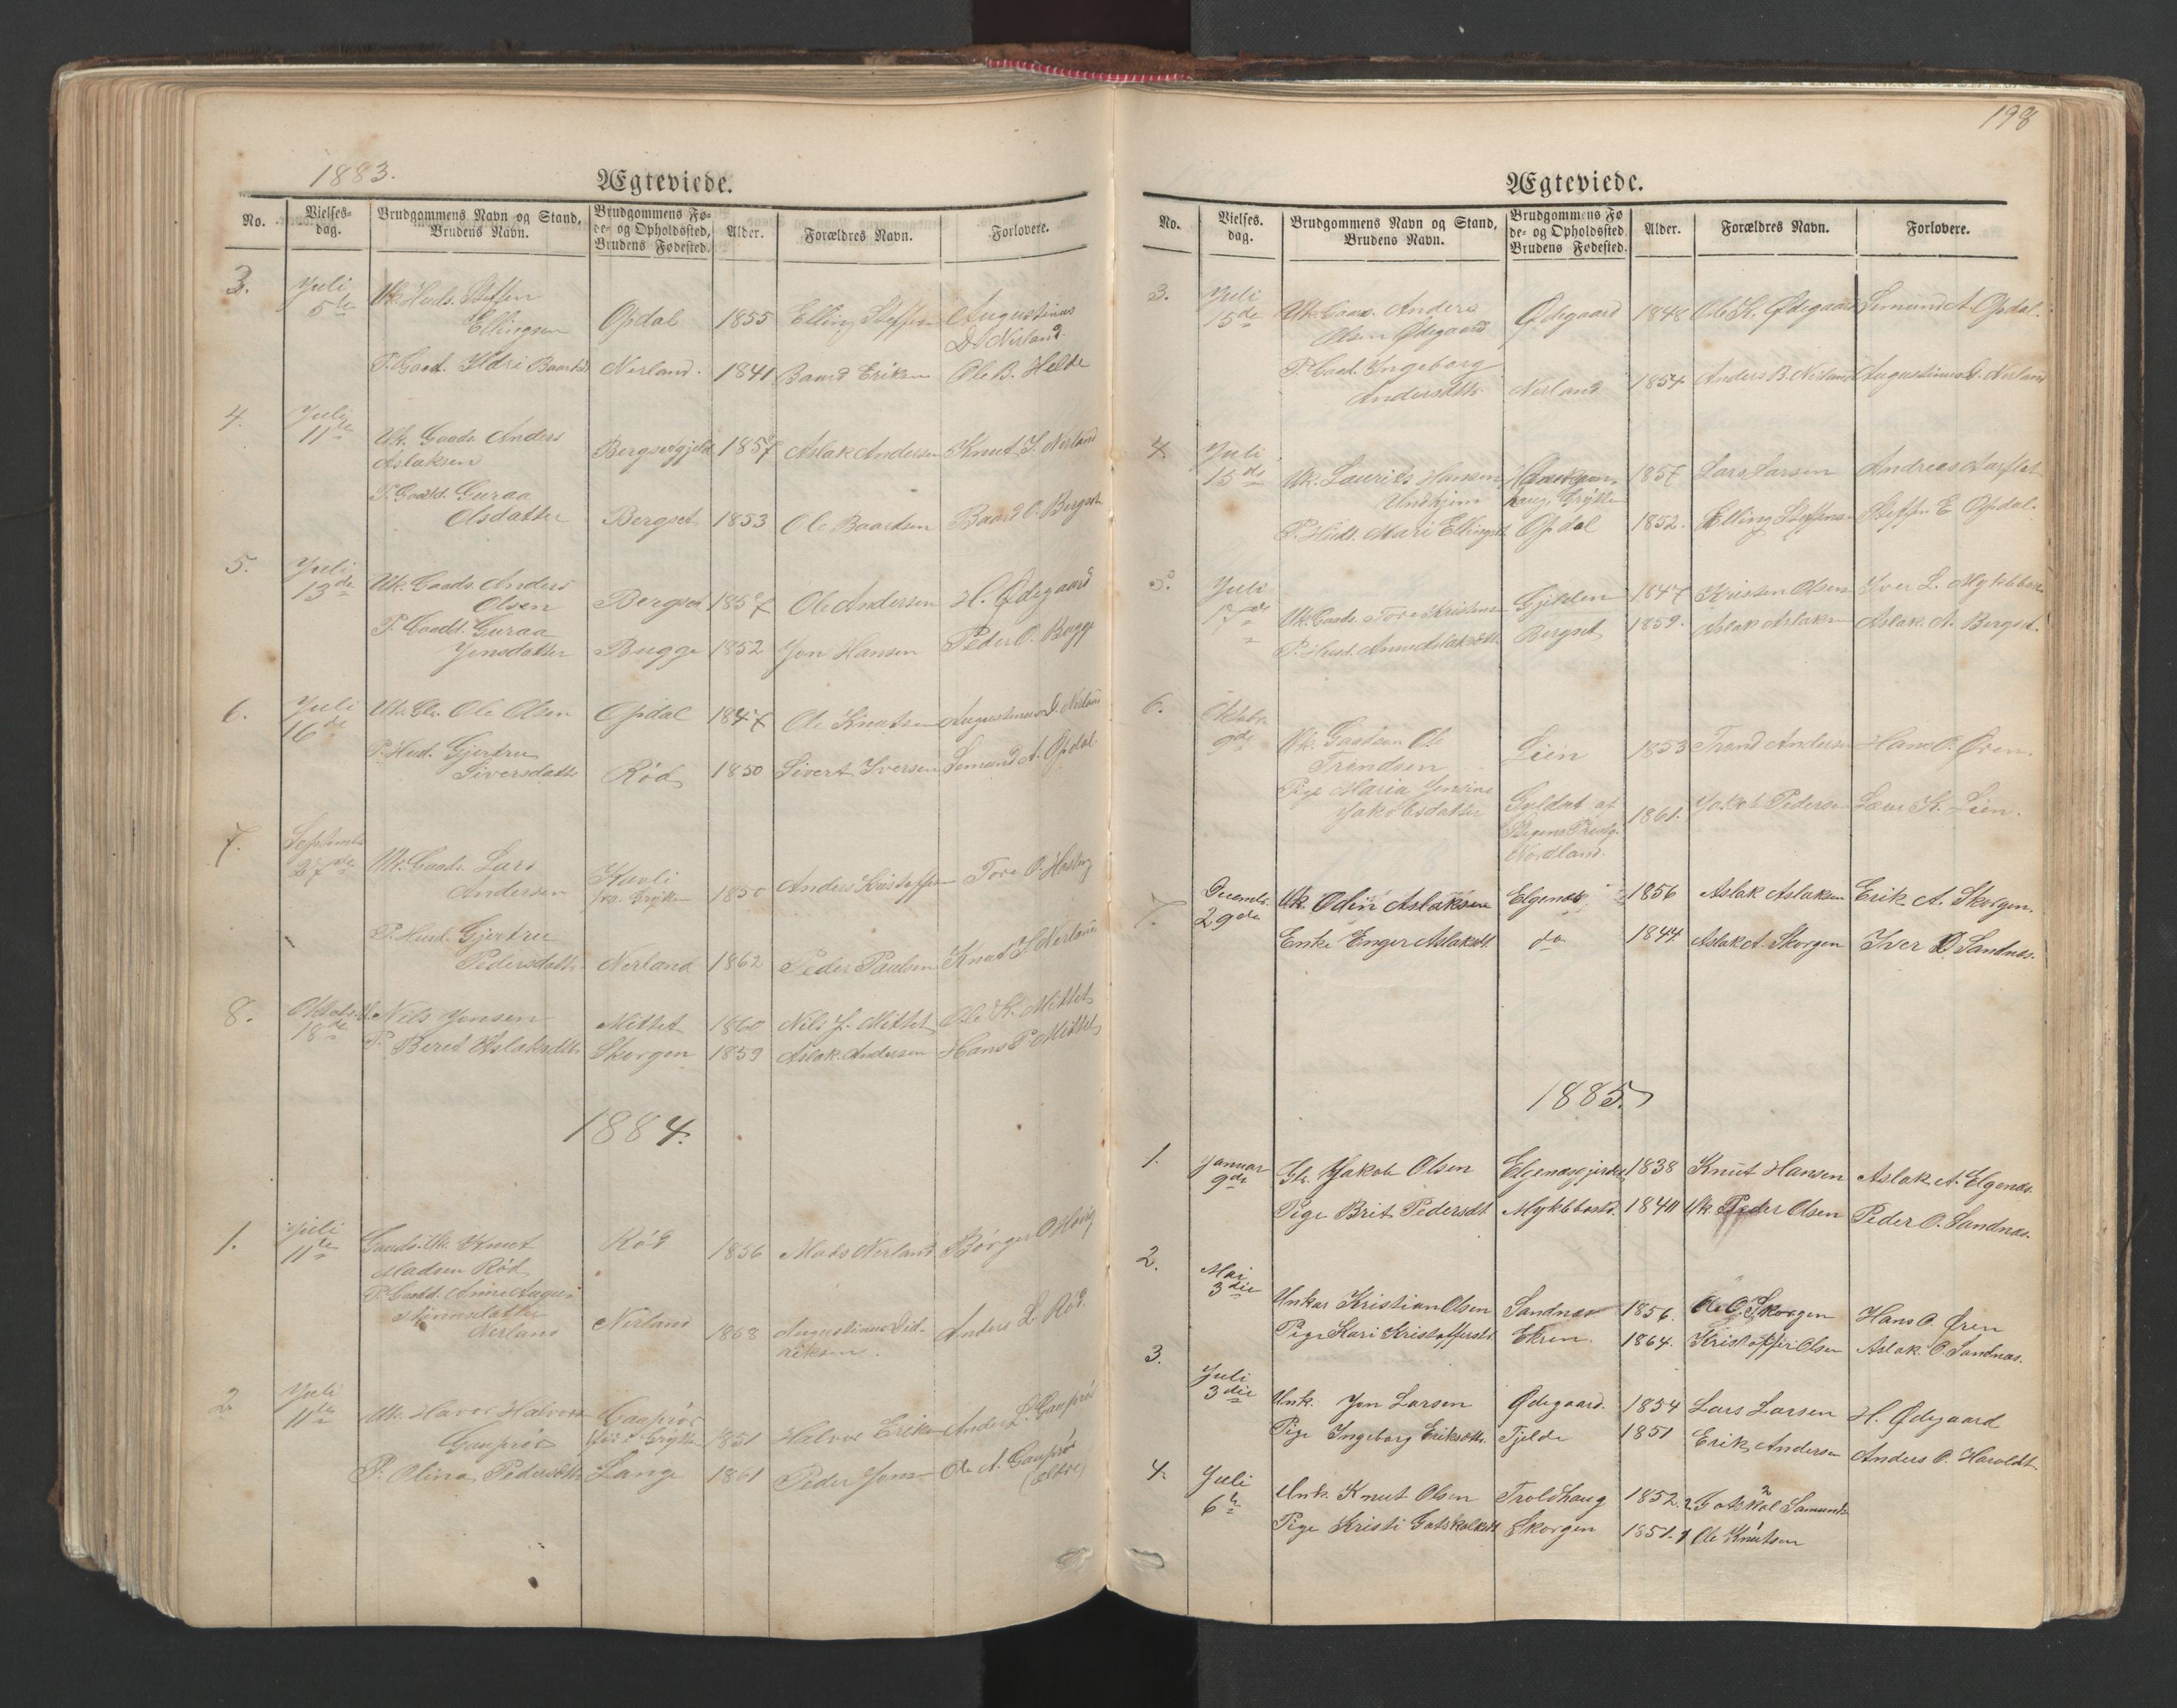 1883.
Ægteviede.
No.
Vielses-
dag.
Brudgommens Navn og Stand,
Brudens Navn.
Brudgommens Fø-
de- og Opholdssted,
Brudens Fødested.
Alder.
Forældres Navn.
Forlovere.
3. Juli Uk. Huds. Steffen
5te Ellingsen Opdal 1855 Elling Steffens Augustinus
D. Nerland.
P. Gaad. Ildri Baards Nerland. 1841 Baard Eriksen Ole B. Helde
4. Juli
11te Uk. Gaads. Anders
Aslaksen Bergsetgjeld 1857 Aslak Andersen Knut J. Nerland
P. Gaadd. Guraa
Olsdatter Bergset 1853 Ole Baardsen Baard O. Bergset
5. Juli
13de Uk. Gaads. Anders
Olsen Bergset 1857 Ole Andersen H. Ødegaard
P. Gaadd. Guraa
Jensdatter Bugge 1852 Jon Hansen Peder O. Bugge
6. Juli
16de Uk. Ole Olsen Opdal 1847 Ole Knutsen Augustinus D. Nerland
P. Hud. Gjertru
Siversdatter Rød 1850 Sivert Iversen Semund A. Opdal.
7. Septembr
27de Uk. Gaads. Lars
Andersen Kavli
fra Grytten 1850 Anders Kristoffersen Tore O.
P. Husd. Gjertru
Pedersdatter Nerland 1862 Peder Paulsen Knut J. Nerland
8. Oktob.
18de Uk. Nils Jensen Mittet 1860 Nils J. Mittet Ole K. Mittet
P. Beret Aslaksdtr. Skorgen 1859 Aslak Andersen Hans P. Mittet
1884.
1. Juli
11te Gaads. Uk. Knut
Madsen Rød Rød 1856 Mads Nerland Børge O.
P. Gaadd. Anne Augus-
tinusdatter
Nerland Nerland 1868 Augustinus Did-
riksen. Anders L. Rød
2 Juli
11te Uk. Havor Halvorsen
Gauprør Gauprør
Grytten 1851 Halvor Eriksen Anders L. Gauprør
P. Olina Pedersdtr. Lange 1861 Peder Jons Ole A. Gauprør
198
Ægteviede.
No.
Vielses.
dag.
Brudgommens Navn og Stand,
Brudens Navn.
Brudgommens Fø
de- og Opholdssted
Brudens Fødested.
Alder.
Forældres Navn.
Forlovere.
3. Juli
15de Uk. Gaads. Anders
Olsen Ødegaard Ødegaard 1848 Ole K. Ødegaard Semund A. Opdal.
P. Gaad. Ingeborg
Andersdtr. Nerland 1854 Anders B. Nerland Augustinus D. Nerland
4 Juli
15de Uk. Laurits Hansen
Undhjem haug, Grytten 1857 Lars Larsen Andreas Aarflot
P. Huds. Mari Ellingsdt. Opdal 1852. Elling Steffensen Steffen E. Opdal.
5. Juli
17de Uk. Gaads. Tore Kristens Gjelden 1847 Kristen Olsen Iver L. Myklebost
P. Husd. Anne Aslaksdtr. Bergset 1859. Aslak Aslaksen Aslak A. Bergset.
6. Oktobr.
9de Uk. Gaadsøn Ole
Trondsen Lien 1853 Trond Andersen Hans O. Øren.
Pige Maria Jensine
Jakobsdatter Gyldat af
Prestg.
Nordland. 1861. Jakob Pedersen K. Lien.
7. Decembr.
29de Uk. Odin Aslaksen Elgenes 1856 Aslak Aslaksen Erik A. Skorgen.
Enke Enger Aslaksdt. do 1844 Aslak A. Skorgen Iver D Sandnæs.
1885.
1. Januar
9de Jakob Olsen Elgenæsgjerdet 1838 Knut Hansen Aslak A. Elgenæs.
Pige Brit Pedersdt Myklebost. 1840 Uk. Peder Olsen Peder O. Sandnæs.
2. Mai
3die Unkar Kristian Olsen Sandnæs 1856. Ole O. Skorgen Hans O. Øren
Pige Kari Kristoffersdt. Ekren. 1864. Kristoffer Olsen Aslak O. Sandnæs.
3. Juli
3die Unk. Jon Larsen Ødegaard. 1854 Lars Larsen H. Ødegaard
Pige Ingeborg Eriksdtr. Tjelde 1851 Erik Andersen Anders O. Haroldt.
4. Juli
6te Unk. Knut Olsen Troldhaug 1852. 2 Gotskal Samunds
Pige Kristi Gotskalksdt Skorgen 1851. 1 Ole Knutsen